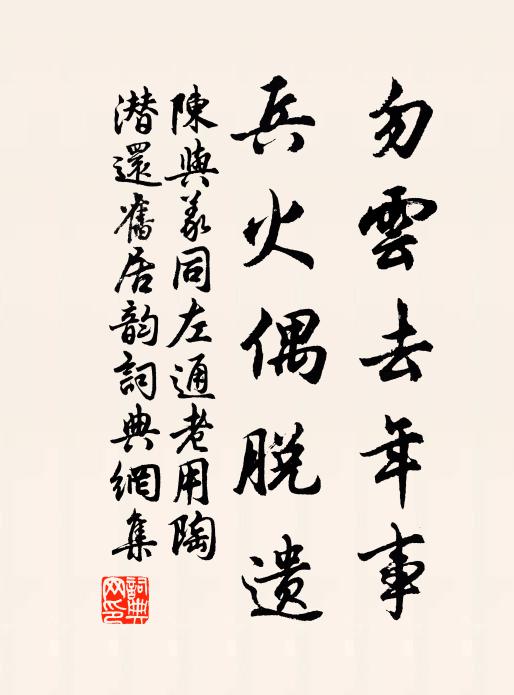 勿雲去年事
兵火偶脫遗
陳與義同左通老用陶
潜還舊居韵詞典網集
詞典网印